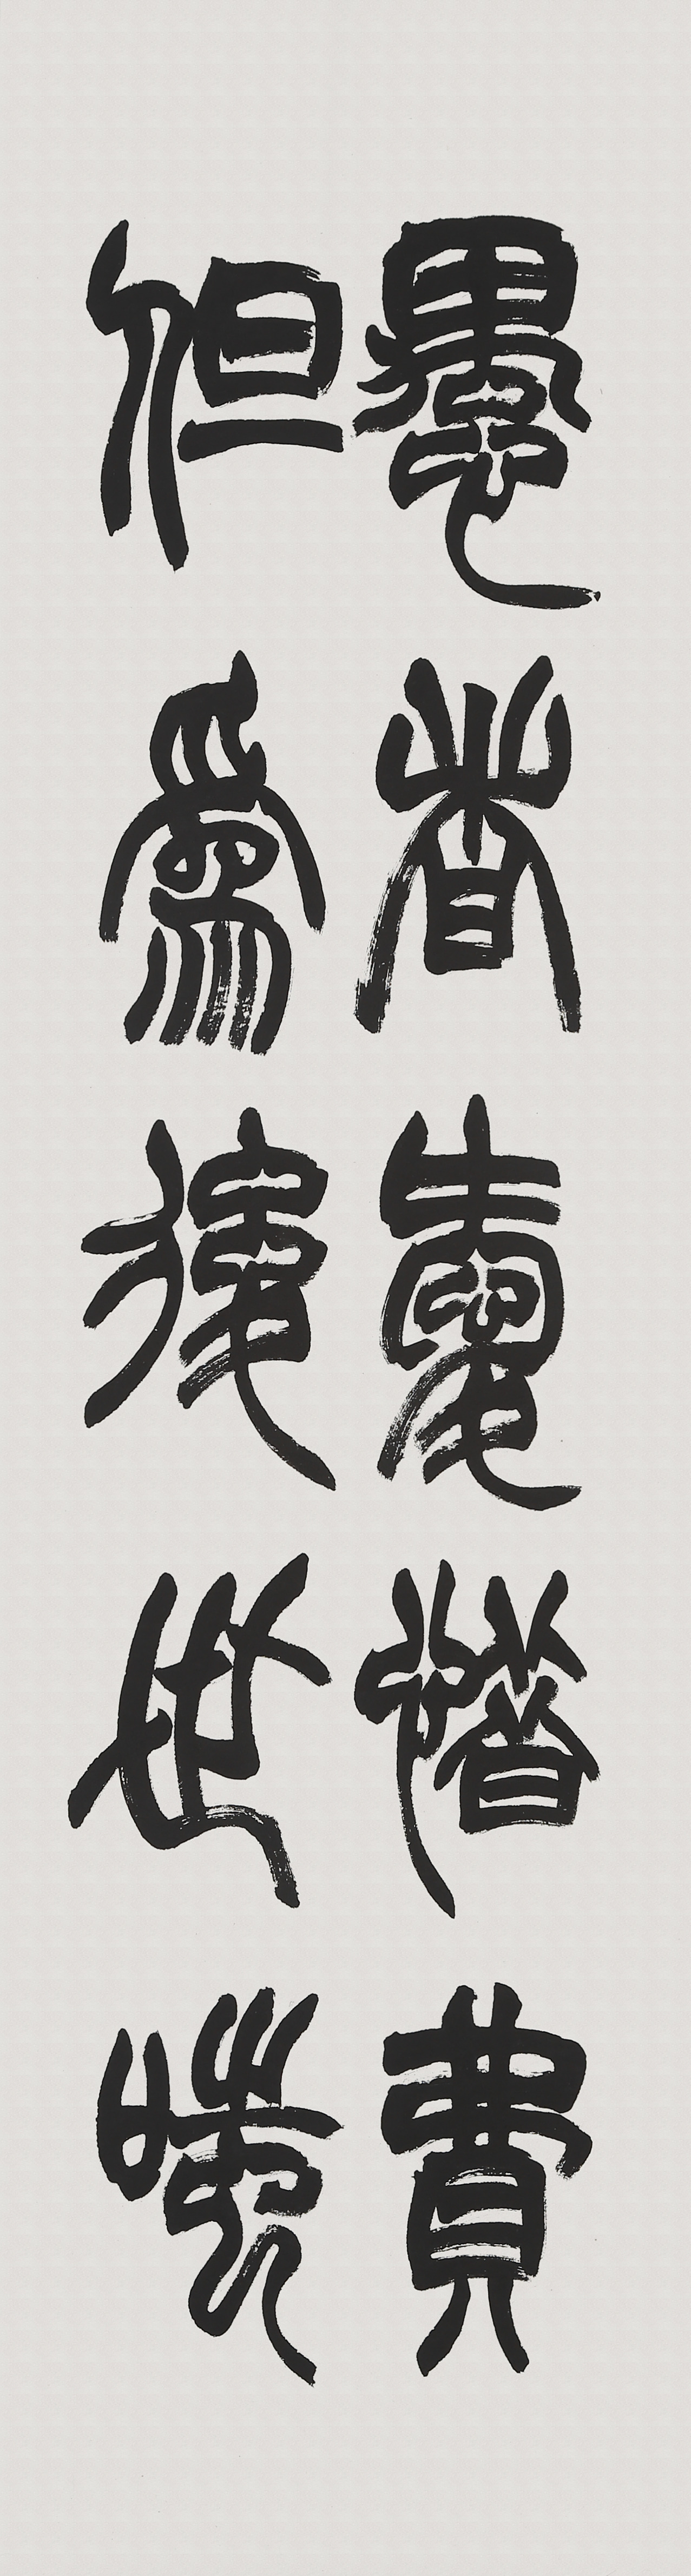 愚者愛惜費
但爲後世嗤